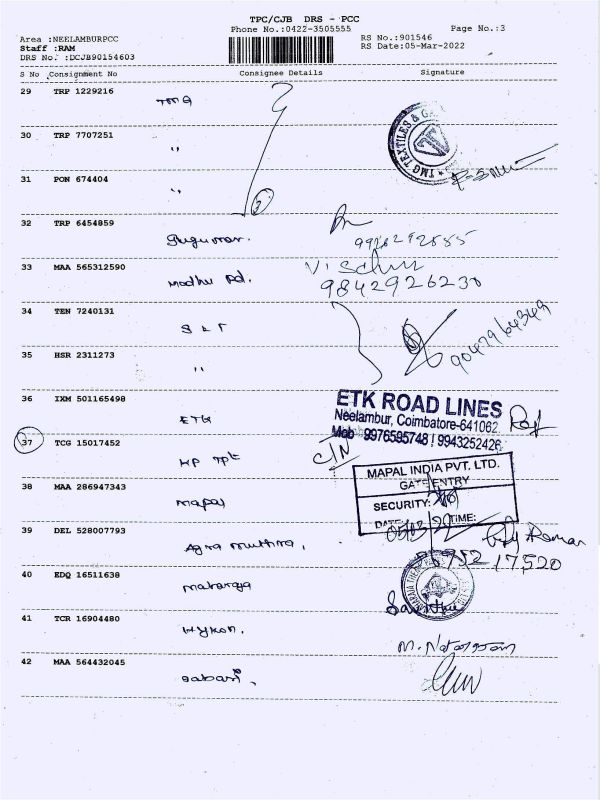 TPC/CJB DRS - PCC
Phone No.:0422-3505555
Page No.:3
Area :NEELAMBURPCC
Staff :RAM
DRS No. :DCJB90154603
RS No.:901546
RS Date:05-Mar-2022
S No Consignment No Consignee Details Signature
29 TRP 1229216 TMG
TMG TEXTILES &
30 TRP 7707251 "
31 PON 674404 "
32 TRP 6454859
33 MAA 565312590 Madhu Pd.
9842926230
34 TEN 7240131
35 HSR 2311273 "
36 IXM 501165498 ETK
ETK ROAD LINES
Neelambur, Coimbatore-641062
Mob 9976595748 / 9943252426
37 TCG 15017452 KP Tpt
C/N
MAPAL INDIA PVT. LTD.
GATE ENTRY
SECURITY:
DATE: TIME:
38 MAA 286947343 Mapal
39 DEL 528007793 Agra muthra,
40 EDQ 16511638 Maharaja
41 TCR 16904480 Hykon.
42 MAA 564432045 Sabari.